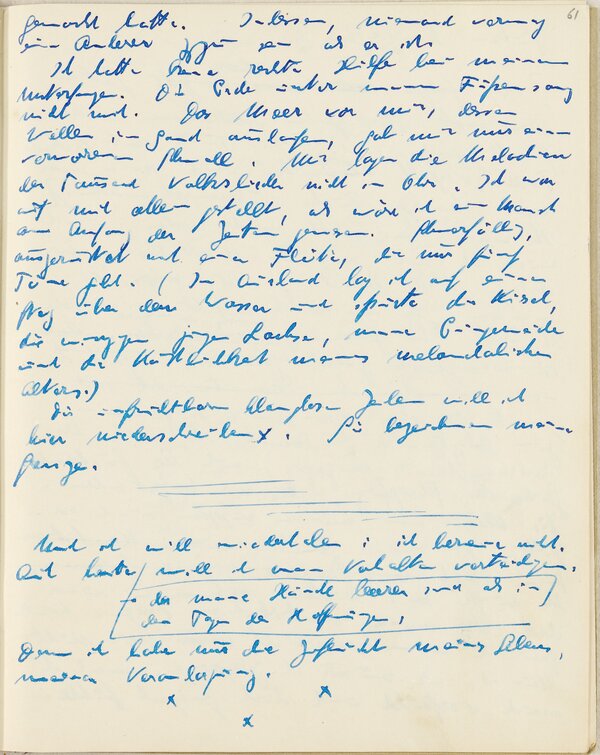 61
gemacht hatte. Indessen, niemand vermag
ein Anderer zu sein als er ist.
Ich hatte keine rechte Hilfe bei meinem
Unterfangen. Die Erde unter meinen Füßen sang
nicht mit. Das Meer vor mir, dessen
Wellen im Sand ausliefen, gab mir nur einen
verworrenen Schwall. Mir lagen die Melodien
der Tausend Volkslieder nicht im Ohr. Ich war
auf mich allein gestellt, als wäre ich ein Mensch
am Anfang der Zeiten gewesen.
ausgerüstet mit einer Flöte, die nur fünf
Töne gibt. (Im Ausland lag ich auf einem
Steg über dem Wasser und spürte die Kiesel,
die jungen Lachse, meine Eingeweide
und die meines melancholischen
Alters.)
Die unfruchtbaren klanglosen Zahlen will ich
hier niederschreiben. Sie bezeichnen meine
Grenzen.
Und ich will wiederholen: ich bereue nicht.
Auch heute will ich mein Verhalten verteidigen,
da meine Hände leerer sind als in
den Tagen der Hoffnungen,
Denn ich habe nur die Zuflucht meines Lebens,
meiner Veranlagung.
x x
x